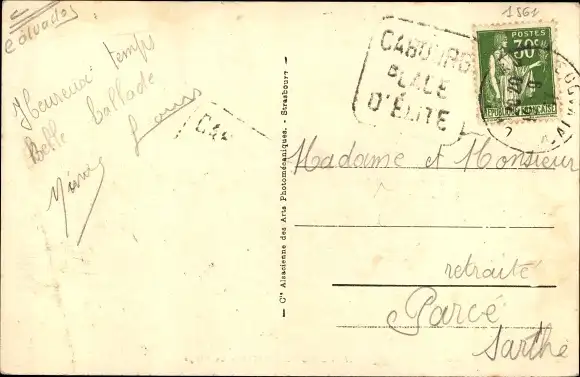 Calvados
Heureux temps
Belle ballade
Louis
CAB
Cie Alsacienne des Arts Photomécaniques. - Strasbourg
1861
CABOURG
PLAGE
D'ÉLITE
POSTES
30c
RÉPUBLIQUE FRANÇAISE
Madame et Monsieur
retraité
Parcé
Sarthe